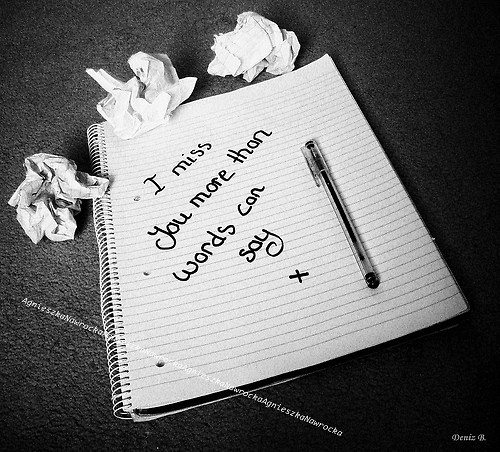 I miss
you more than
words can
say
x
AgnieszkaNawrockaAgnieszkaNawrockaAgnieszkaNawrockaAgnieszkaNawrocka
Deniz B.